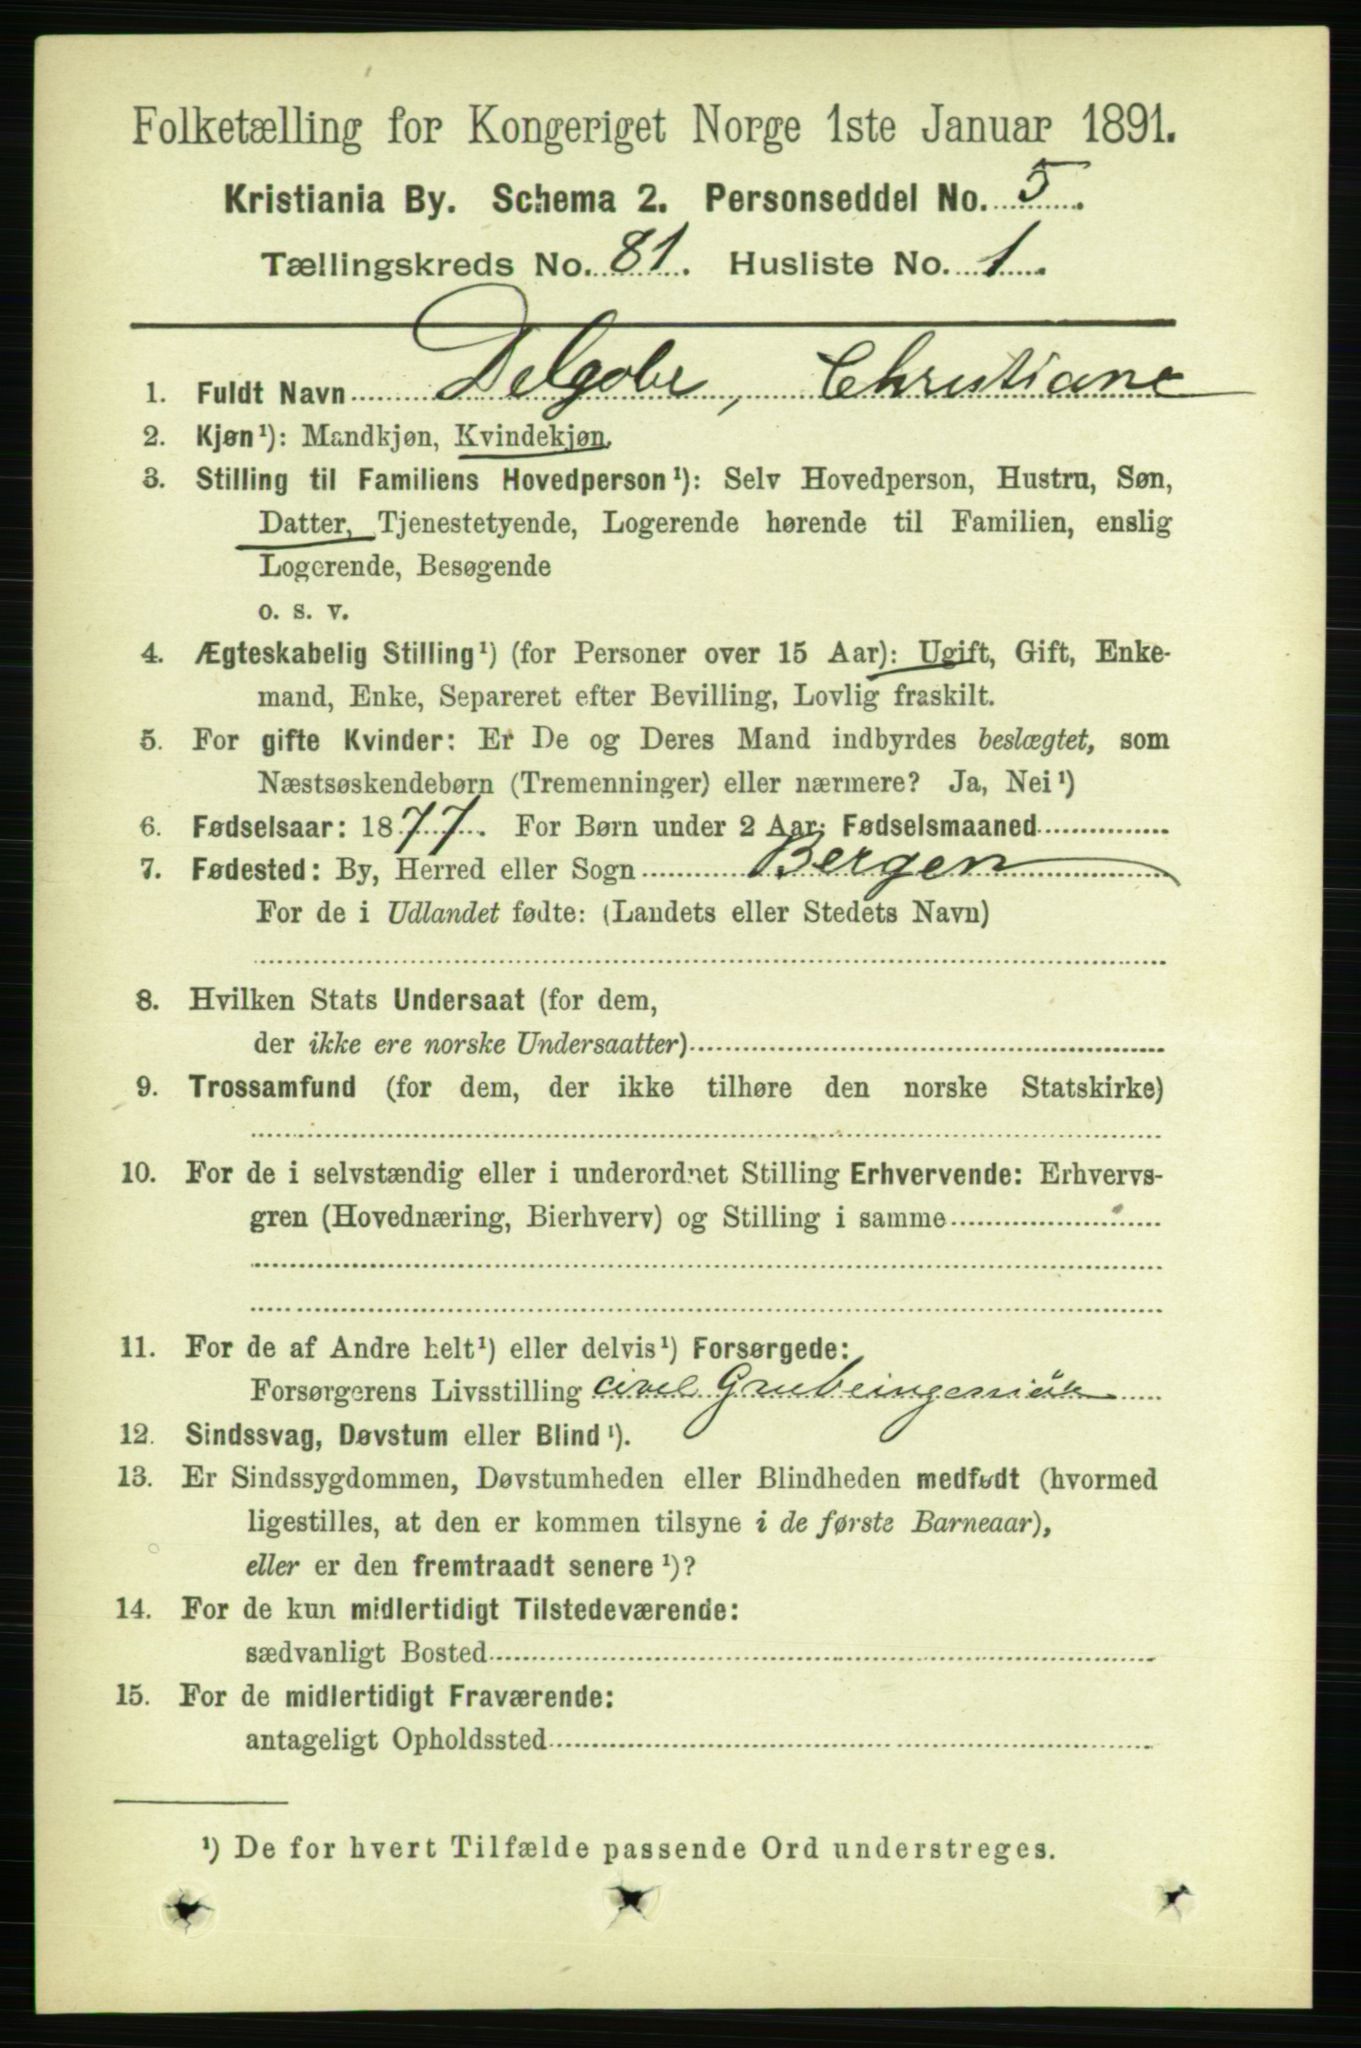 Folketælling for Kongeriget Norge 1ste Januar 1891.
Kristiania By. Schema 2. Personseddel No. 5.
Tællingskreds No. 81. Husliste No. 1.
1. Fuldt Navn Delgobe, Christiane
2. Kjøn¹): Mandkjøn, Kvindekjøn.
3. Stilling til Familiens Hovedperson¹): Selv Hovedperson, Hustru, Søn,
Datter, Tjenestetyende, Logerende hørende til Familien, enslig
Logerende, Besøgende
o. s. v.
4. Ægteskabelig Stilling¹) (for Personer over 15 Aar): Ugift, Gift, Enke-
mand, Enke, Separeret efter Bevilling, Lovlig fraskilt.
5. For gifte Kvinder: Er De og Deres Mand indbyrdes beslægtet, som
Næstsøskendebørn (Tremenninger) eller nærmere? Ja, Nei¹)
6. Fødselsaar: 1877. For Børn under 2 Aar: Fødselsmaaned
7. Fødested: By, Herred eller Sogn Bergen
For de i Udlandet fødte: (Landets eller Stedets Navn)
8. Hvilken Stats Undersaat (for dem,
der ikke ere norske Undersaatter)
9. Trossamfund (for dem, der ikke tilhøre den norske Statskirke)
10. For de i selvstændig eller i underordnet Stilling Erhvervende: Erhvervs-
gren (Hovednæring, Bierhverv) og Stilling i samme
11. For de af Andre helt¹) eller delvis¹) Forsørgede:
Forsørgerens Livsstilling civil Grubeingeniør
12. Sindssvag, Døvstum eller Blind¹).
13. Er Sindssygdommen, Døvstumheden eller Blindheden medfødt (hvormed
ligestilles, at den er kommen tilsyne i de første Barneaar),
eller er den fremtraadt senere¹)?
14. For de kun midlertidigt Tilstedeværende:
sædvanligt Bosted
15. For de midlertidigt Fraværende:
antageligt Opholdssted
¹) De for hvert Tilfælde passende Ord understreges.